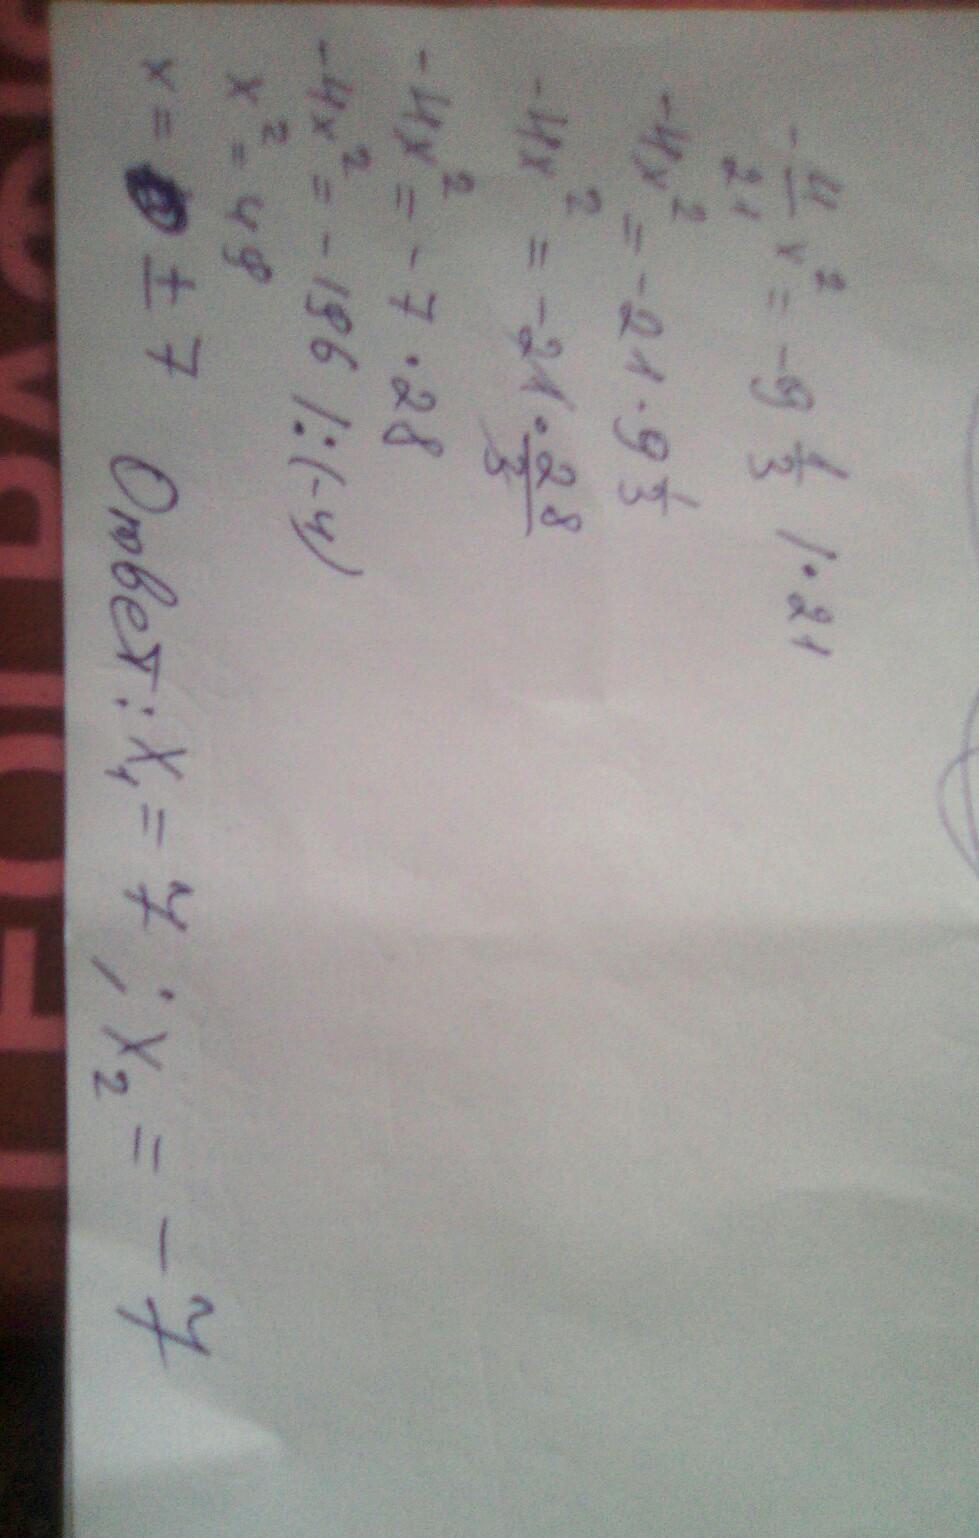 -4/21 x² = -9 1/3 /·21
-4x² = -21·9 1/3
-4x² = -21·28/3
-4x² = -7·28
-4x² = -196 /:(-4)
x² = 49
x = ±7 Ответ: x₁ = 7; x₂ = -7